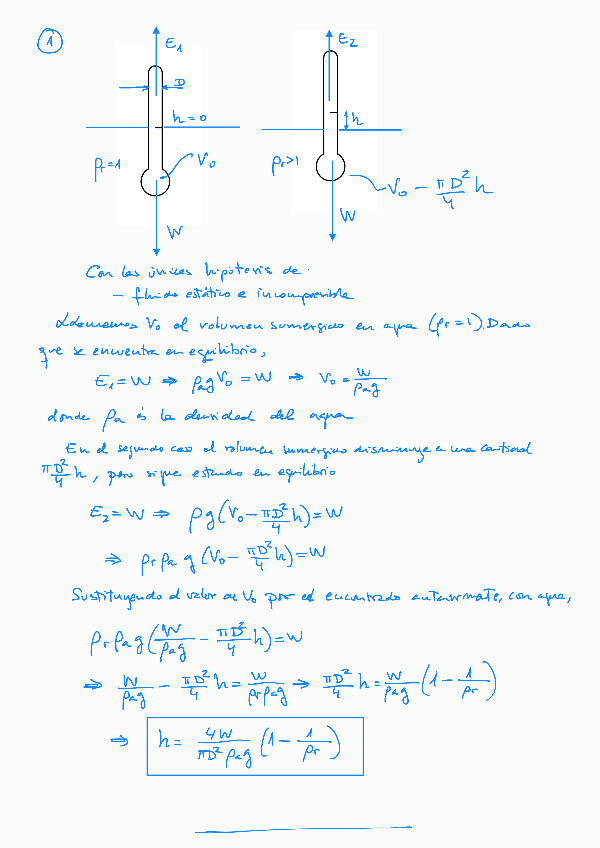 1
E₁
D
h = 0
ρr = 1
V₀
W
E₂
h
ρr > 1
V₀ - πD²/4 h
W
Con las únicas hipótesis de:
- fluido estático e incompresible
Llamamos V₀ al volumen sumergido en agua (ρr = 1). Dado
que se encuentra en equilibrio,
E₁ = W ⇒ ρa g V₀ = W ⇒ V₀ = W/(ρa g)
donde ρa es la densidad del agua
En el segundo caso el volumen sumergido disminuye en una cantidad
πD²/4 h, pero sigue estando en equilibrio
E₂ = W ⇒ ρg(V₀ - πD²/4 h) = W
⇒ ρr ρa g (V₀ - πD²/4 h) = W
Sustituyendo el valor de V₀ por el encontrado anteriormente, con agua,
ρr ρa g (W/(ρa g) - πD²/4 h) = W
⇒ W/(ρa g) - πD²/4 h = W/(ρr ρa g) ⇒ πD²/4 h = W/(ρa g) (1 - 1/ρr)
⇒ h = 4W/(πD² ρa g) (1 - 1/ρr)